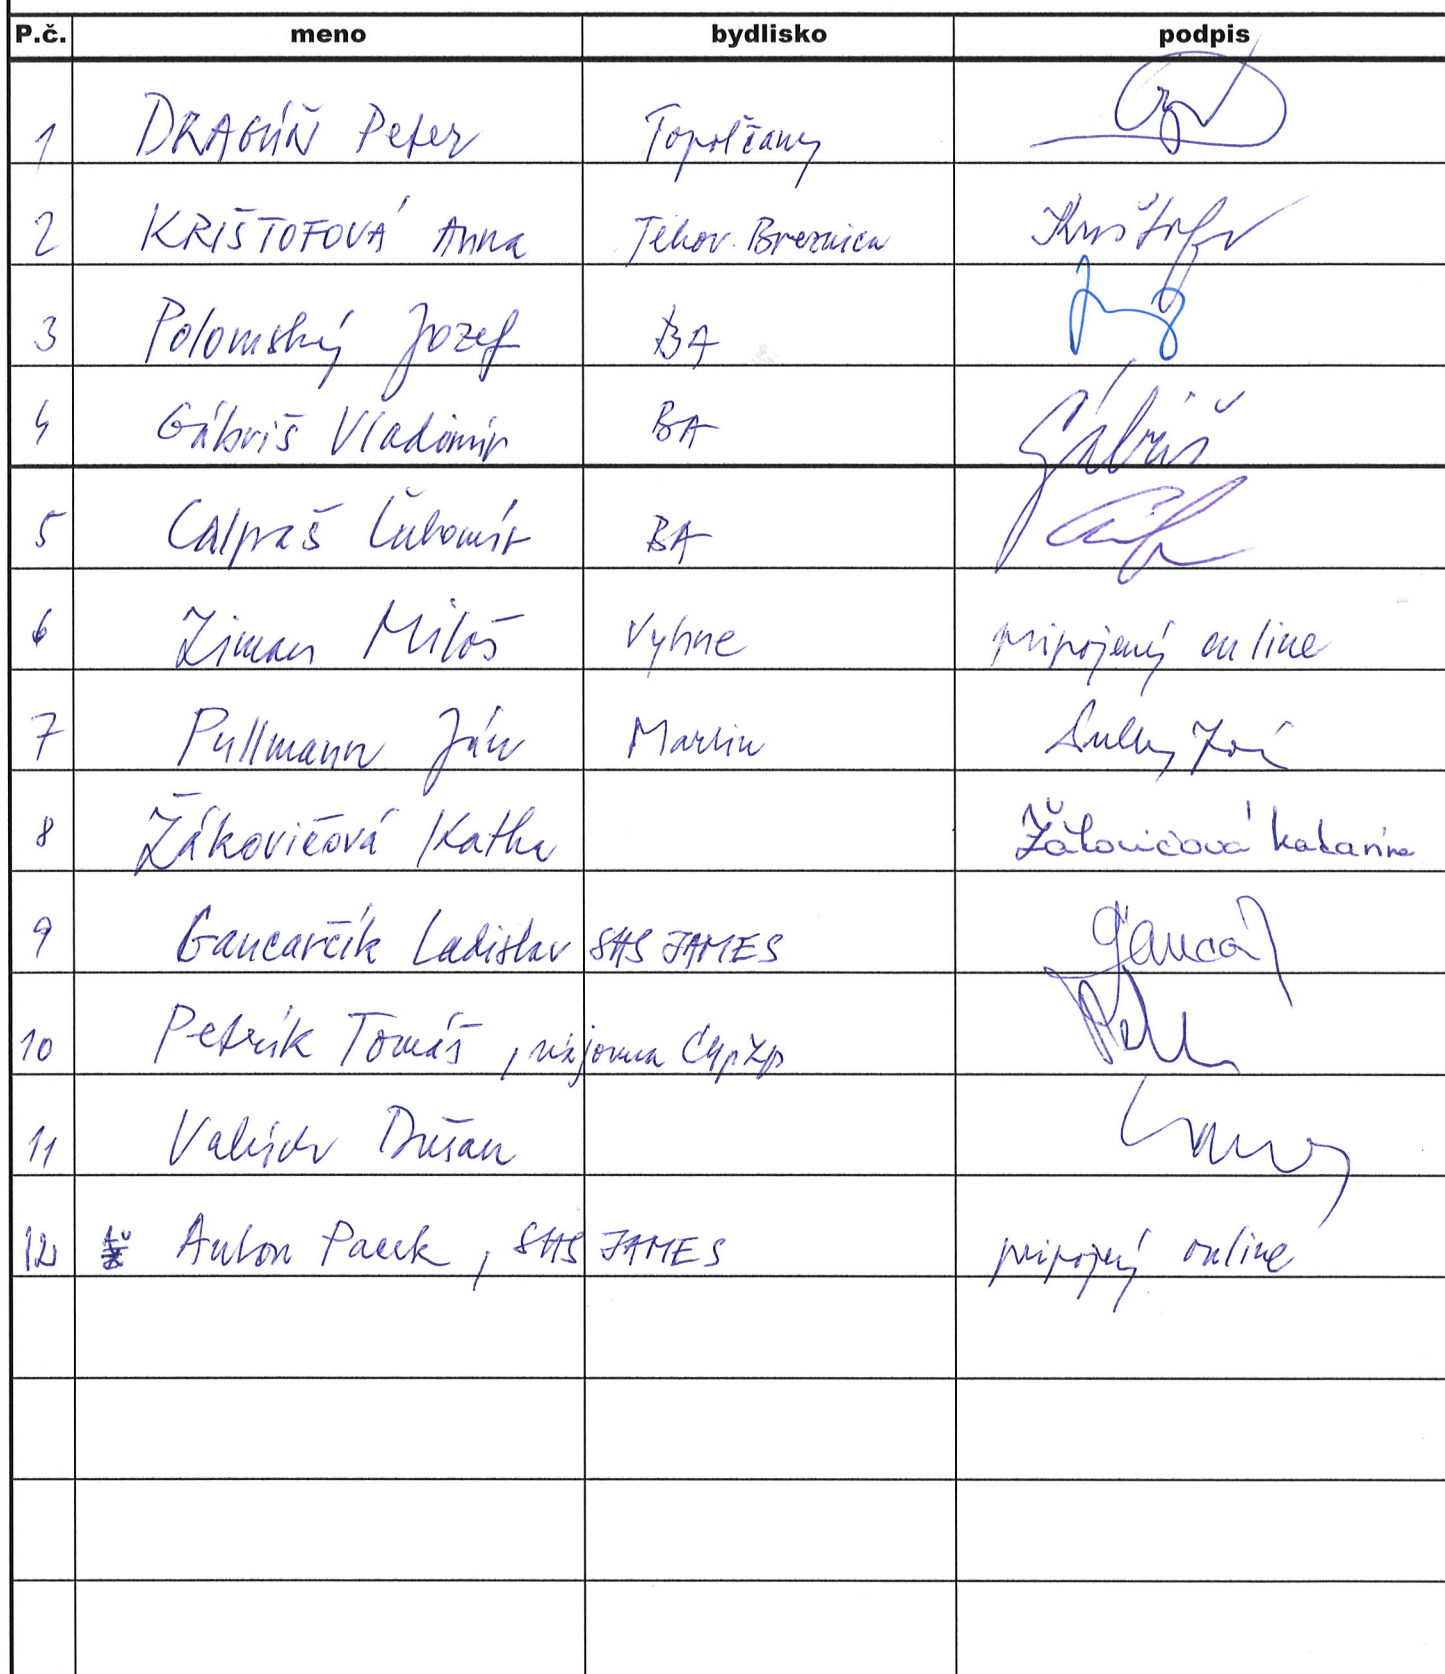 P.č. meno bydlisko podpis
1 DRAGÚŇ Peter Topoľčany
2 KRIŠTOFOVÁ Anna Tekov. Breznica Krištofov
3 Polomský Jozef BA
4 Gábriš Vladimír BA Gábriš
5 Calpaš Ľubomír BA
6 Ziman Miloš Vyhne pripojený online
7 Pullmann Ján Martin
8 Žákovičová Katka Žákovičová Katarína
9 Gancarčík Ladislav SHS JAMES Gancar
10 Petrík Tomáš, nájomca
11 Dušan
12 Anton Pacek, SHS JAMES pripojený online